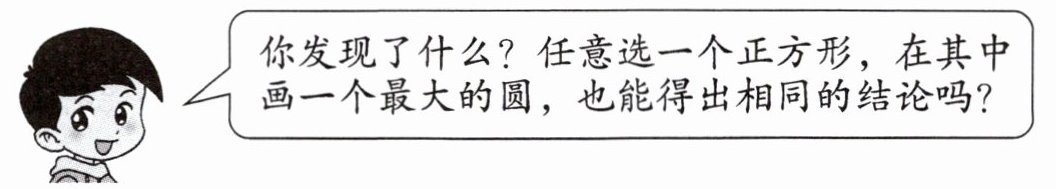 你发现了什么？任意选一个正方形，在其中
画一个最大的圆，也能得出相同的结论吗？